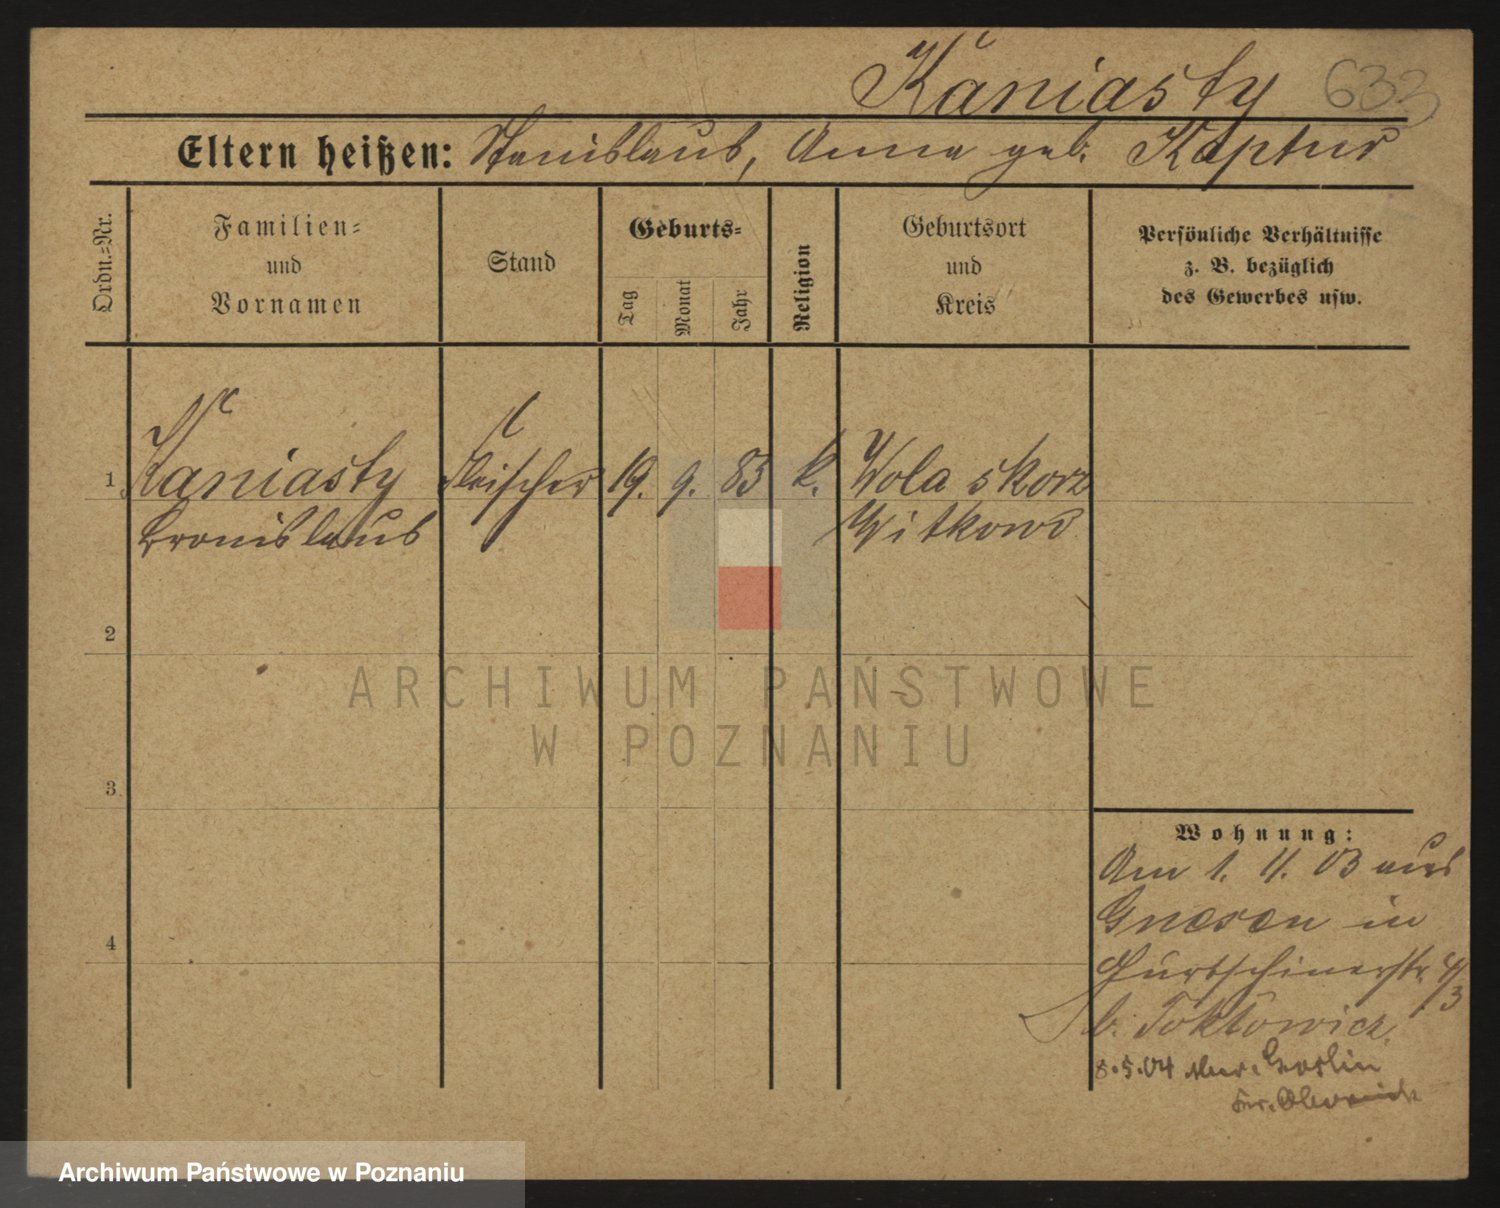 Kaniasty 633
Eltern heißen: Stanislaus, Anna geb. Kaptur
Ordn.-Nr.
Familien-
und
Vornamen
Stand
Geburts-
Tag
Monat
Jahr
Religion
Geburtsort
und
Kreis
Persönliche Verhältnisse
z. B. bezüglich
des Gewerbes usw.
1 Kaniasty Fleischer 19. 9. 83 k. Wola skorz
Bronislaus Witkowo
2
3
4
Wohnung:
Am 1. 4. 03 aus
Gnesen in
b. Toktowicz
8.5.04 Mur. Goslin
Kr. Obornick
ARCHIWUM PAŃSTWOWE
W POZNANIU
Archiwum Państwowe w Poznaniu